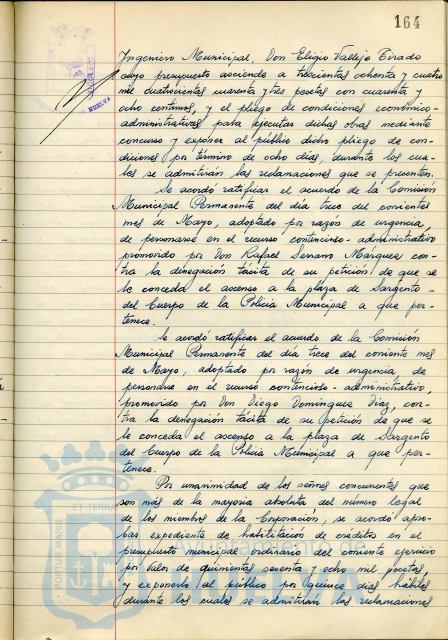 164
Ingeniero Municipal, Don Eligio Vallejo Tirado
cuyo presupuesto asciende a trescientas ochenta y cuatro
mil cuatrocientas cuarenta y tres pesetas con cuarenta y
ocho centimos, y el pliego de condiciones económico-
administrativas para ejecutar dichas obras mediante
concurso y exponer al público dicho pliego de con-
diciones por término de ocho días, durante los cua-
les se admitirán las reclamaciones que se presenten.
Se acordó ratificar el acuerdo de la Comisión
Municipal Permanente del día trece del corriente
mes de Mayo, adoptado por razón de urgencia,
de personarse en el recurso contencioso-administrativo
promovido por Don Rafael Serrano Márquez con-
tra la denegación tácita de su petición de que se
le conceda el ascenso a la plaza de Sargento
del Cuerpo de la Policía Municipal a que per-
tenece.
Se acordó ratificar el acuerdo de la Comisión
Municipal Permanente del día trece del corriente mes
de Mayo, adoptado por razón de urgencia, de
personarse en el recurso contencioso-administrativo,
promovido por Don Diego Domínguez Díaz, con-
tra la denegación tácita de su petición de que se
le conceda el ascenso a la plaza de Sargento
del Cuerpo de la Policía Municipal a que per-
tenece.
Por unanimidad de los señores concurrentes que
son más de la mayoría absoluta del número legal
de los miembros de la Corporación, se acordó apro-
bar expediente de habilitación de créditos en el
presupuesto municipal ordinario del corriente ejercicio
por valor de quinientas sesenta y ocho mil pesetas,
y exponerlo al público por quince días hábiles
durante los cuales se admitirán las reclamaciones
HUELVA
PORTUS MARIS
ET TERRA